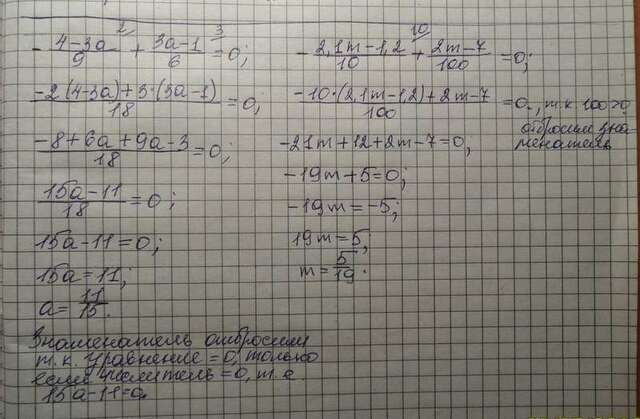 -(4-3a)/9 ² + (3a-1)/6 ³ = 0;
(-2(4-3a)+3·(3a-1))/18 = 0;
(-8+6a+9a-3)/18 = 0;
(15a-11)/18 = 0;
15a-11=0;
15a=11;
a= 11/15.
Знаменатель отбросим
т.к. уравнение =0, только
если числитель =0, т.е.
15a-11=0.
-(2,1m-1,2)/10 ¹⁰ + (2m-7)/100 = 0;
(-10·(2,1m-1,2)+2m-7)/100 = 0, т.к. 100>0
отбросим зна-
менатель
-21m+12+2m-7=0,
-19m+5=0;
-19m=-5;
19m=5;
m= 5/19.